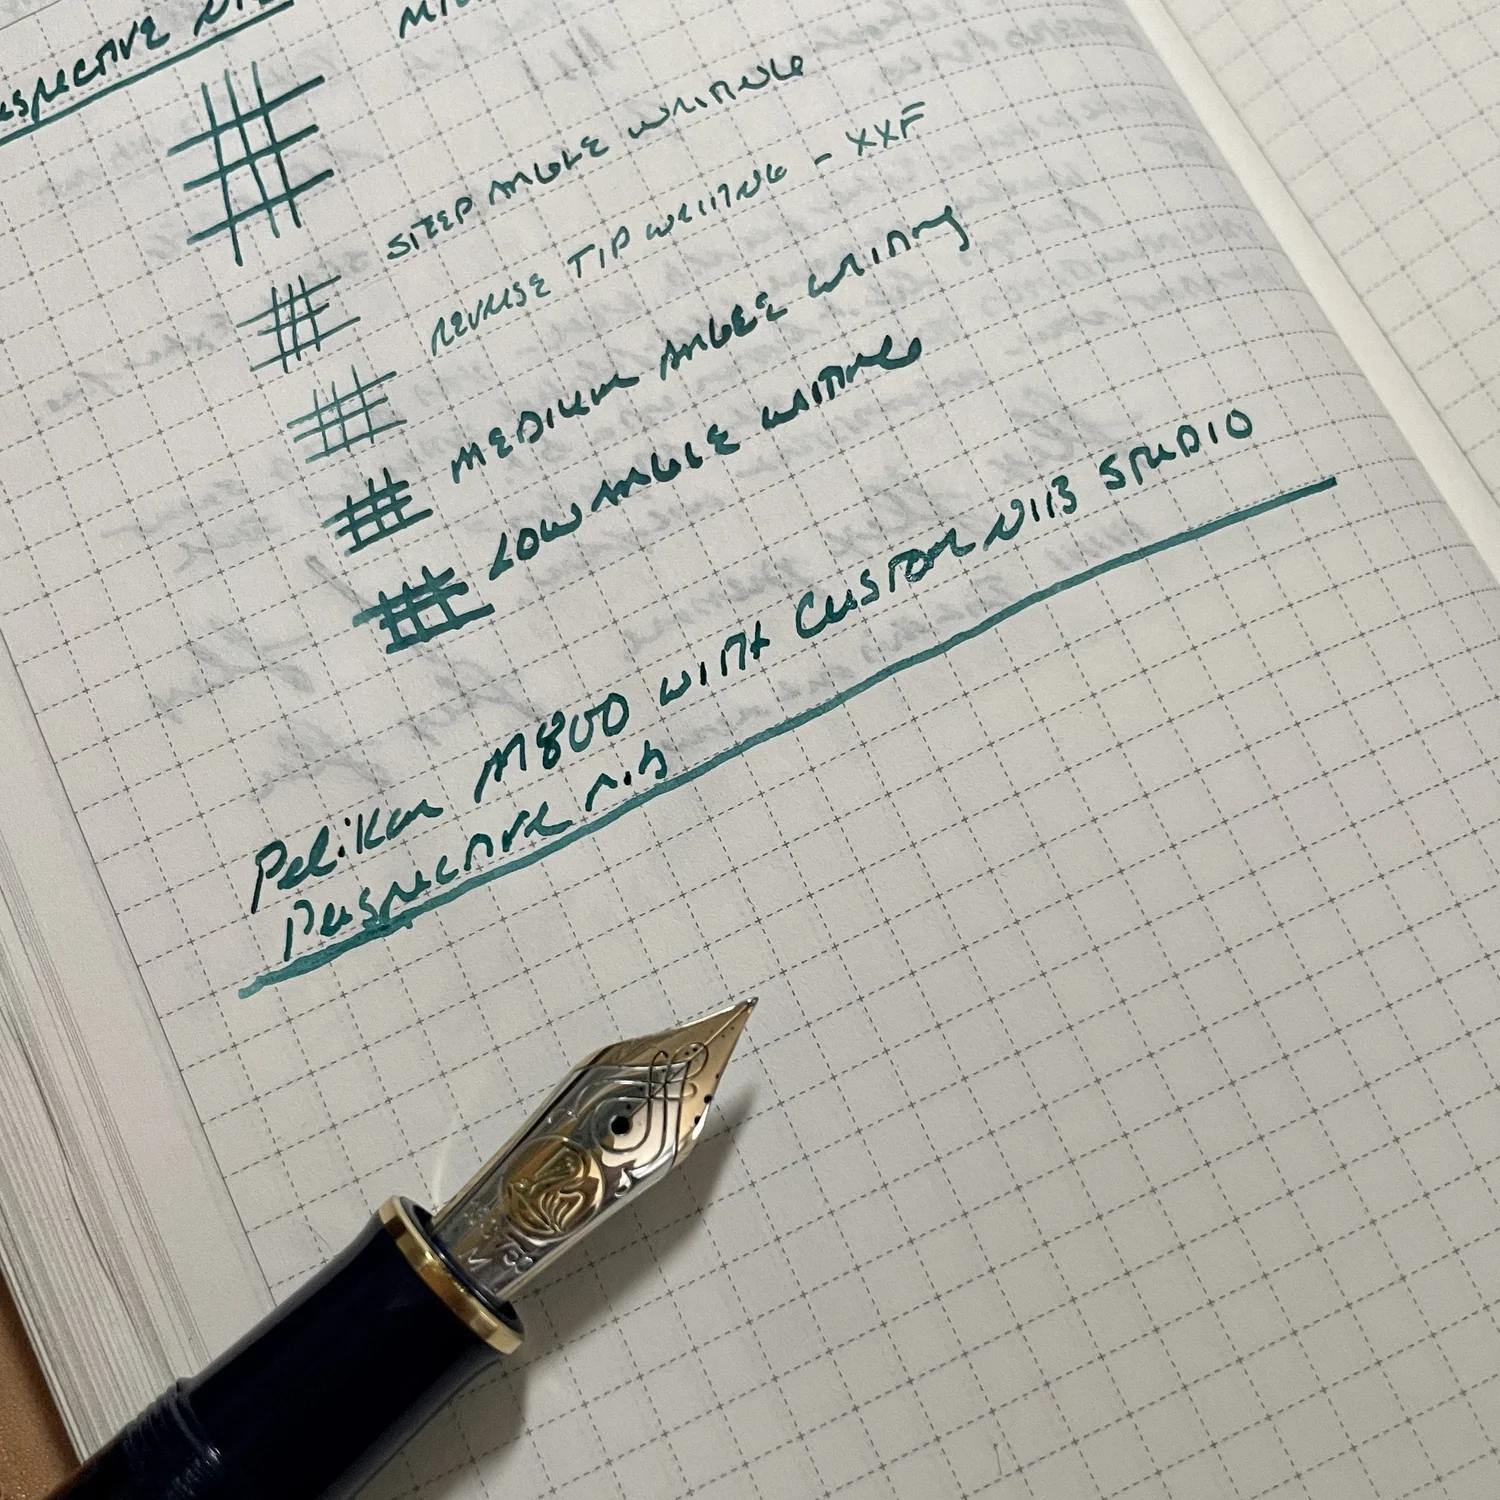 PERSPECTIVE NIB
STEEP ANGLE WRITING
REVERSE TIP WRITING - XXF
MEDIUM ANGLE WRITING
LOW ANGLE WRITING
Pelikan M800 WITH CUSTOM NIB STUDIO
PERSPECTIVE nib